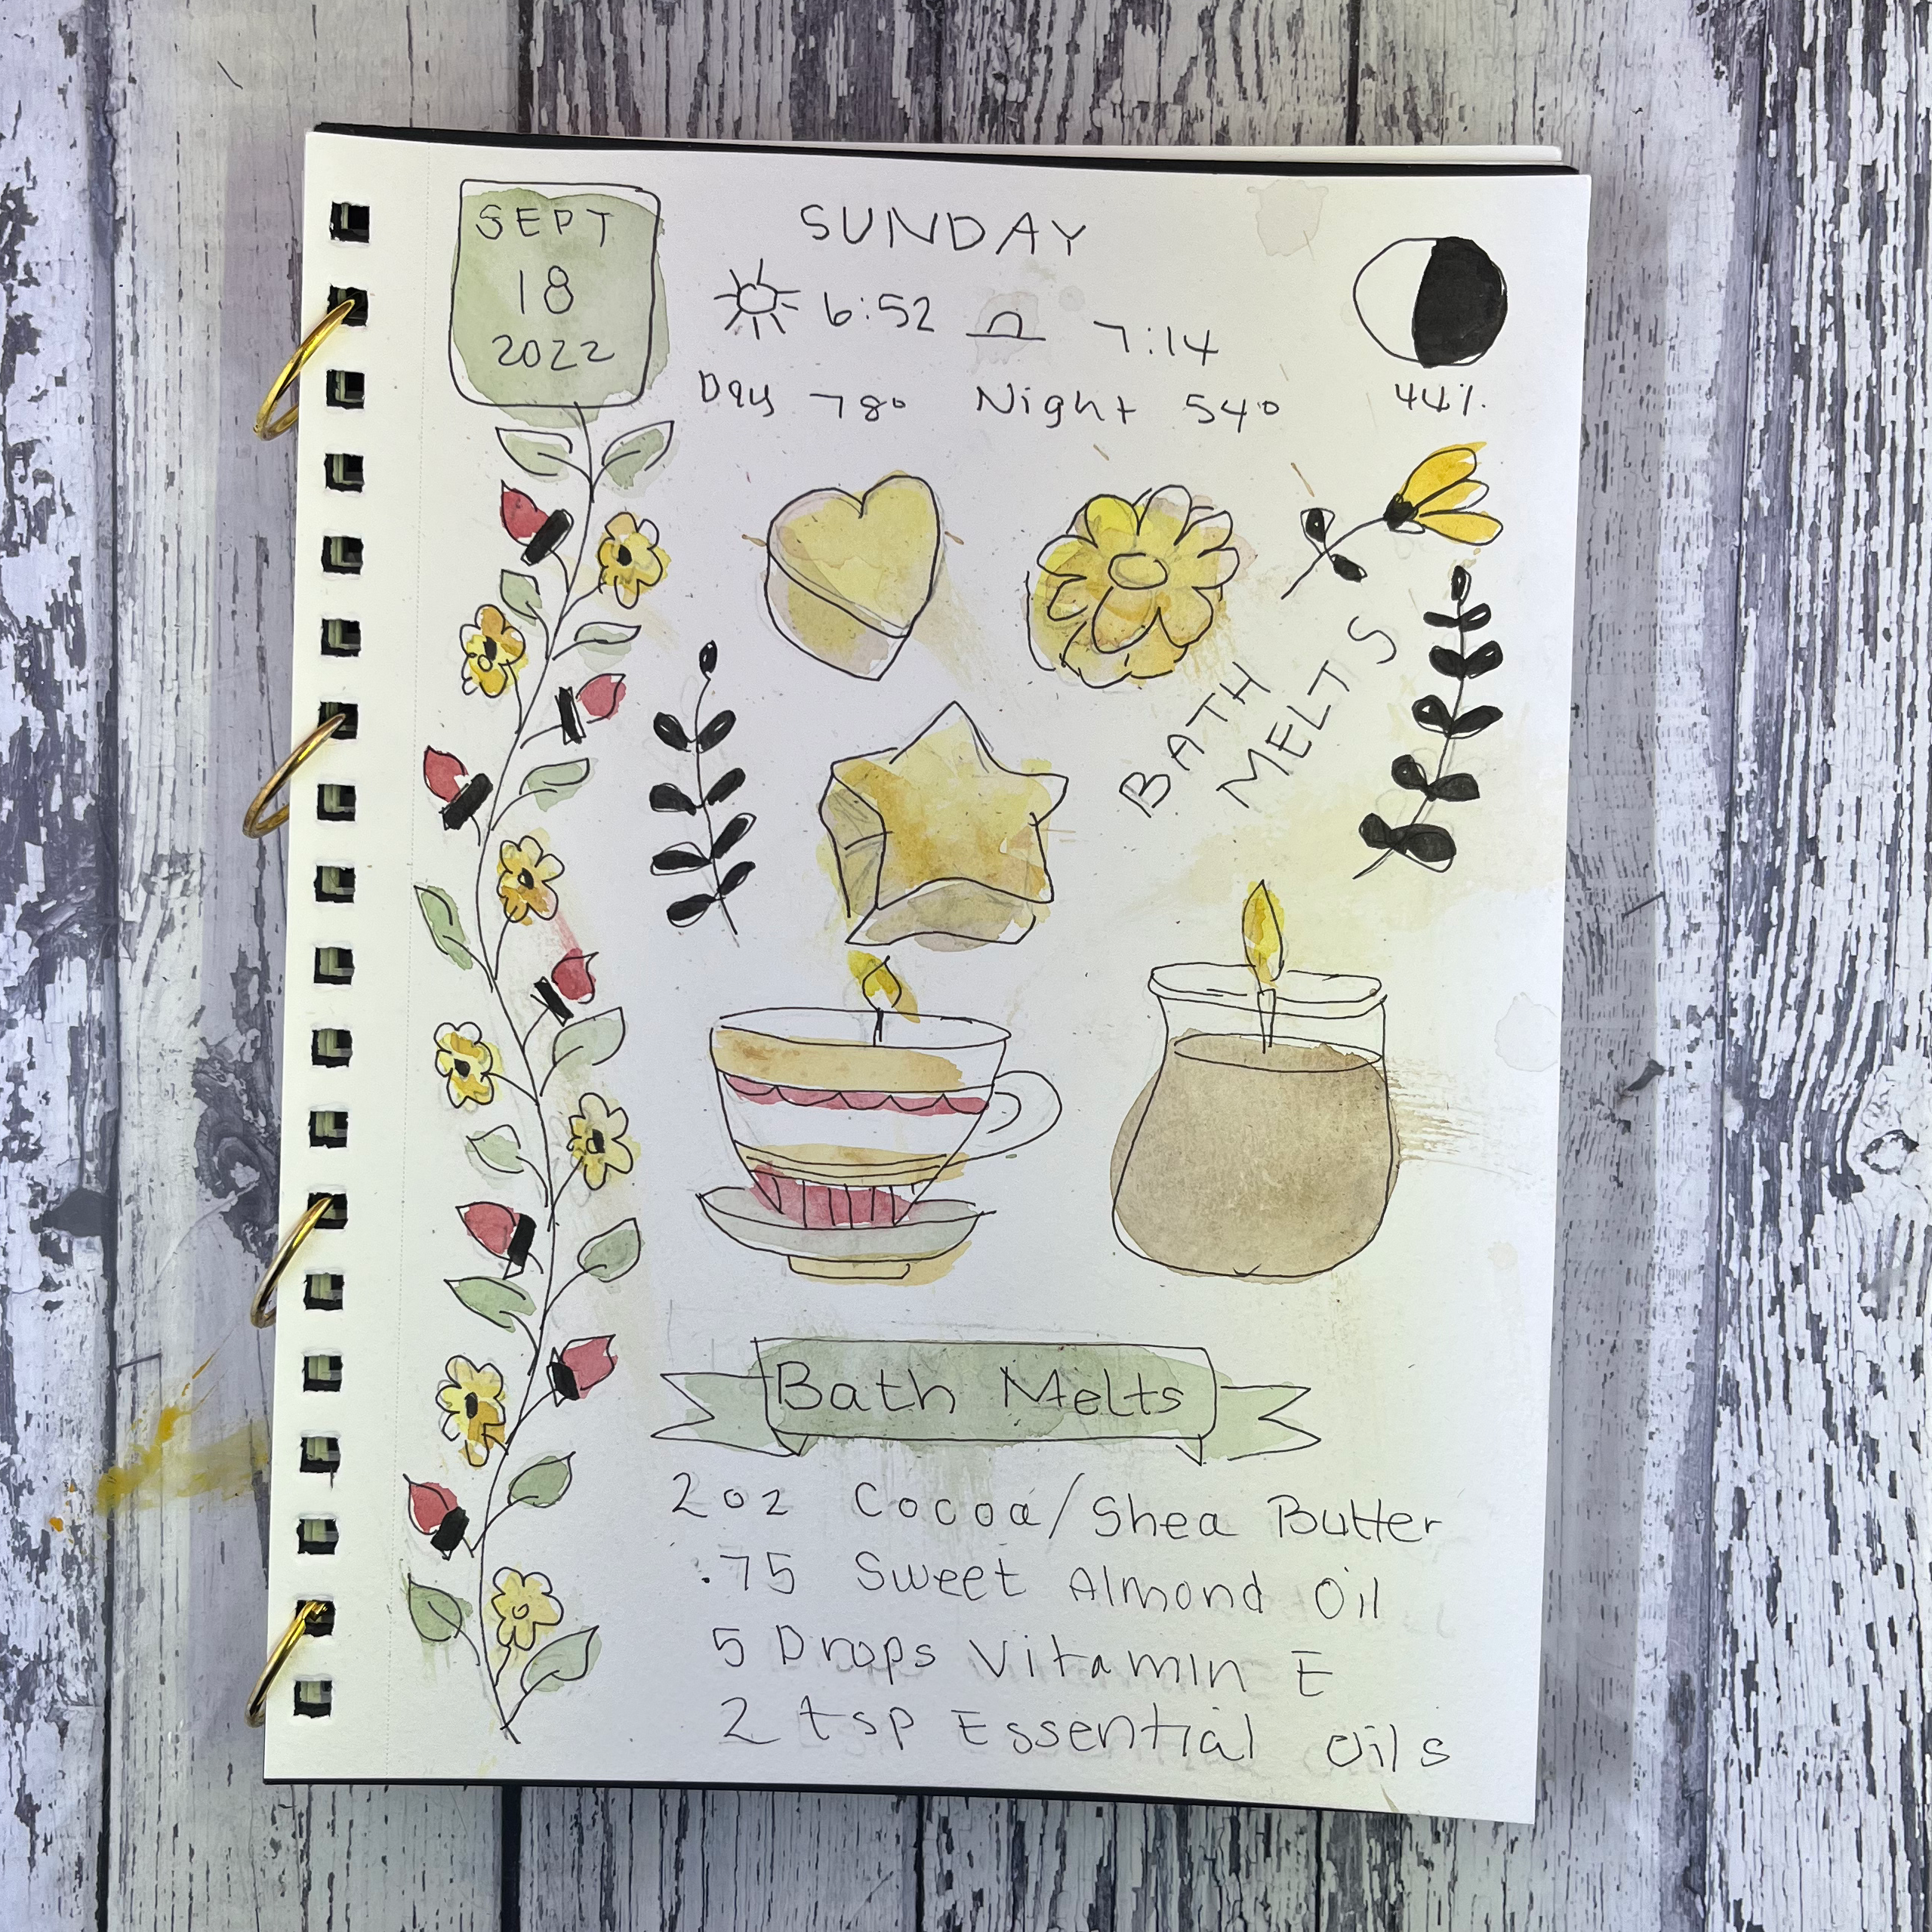 SEPT
18
2022
SUNDAY
6:52 7:14
Day 78° Night 54°
44%
BATH
MELTS
Bath Melts
2 oz Cocoa/Shea Butter
.75 Sweet Almond Oil
5 Drops Vitamin E
2 tsp Essential Oils